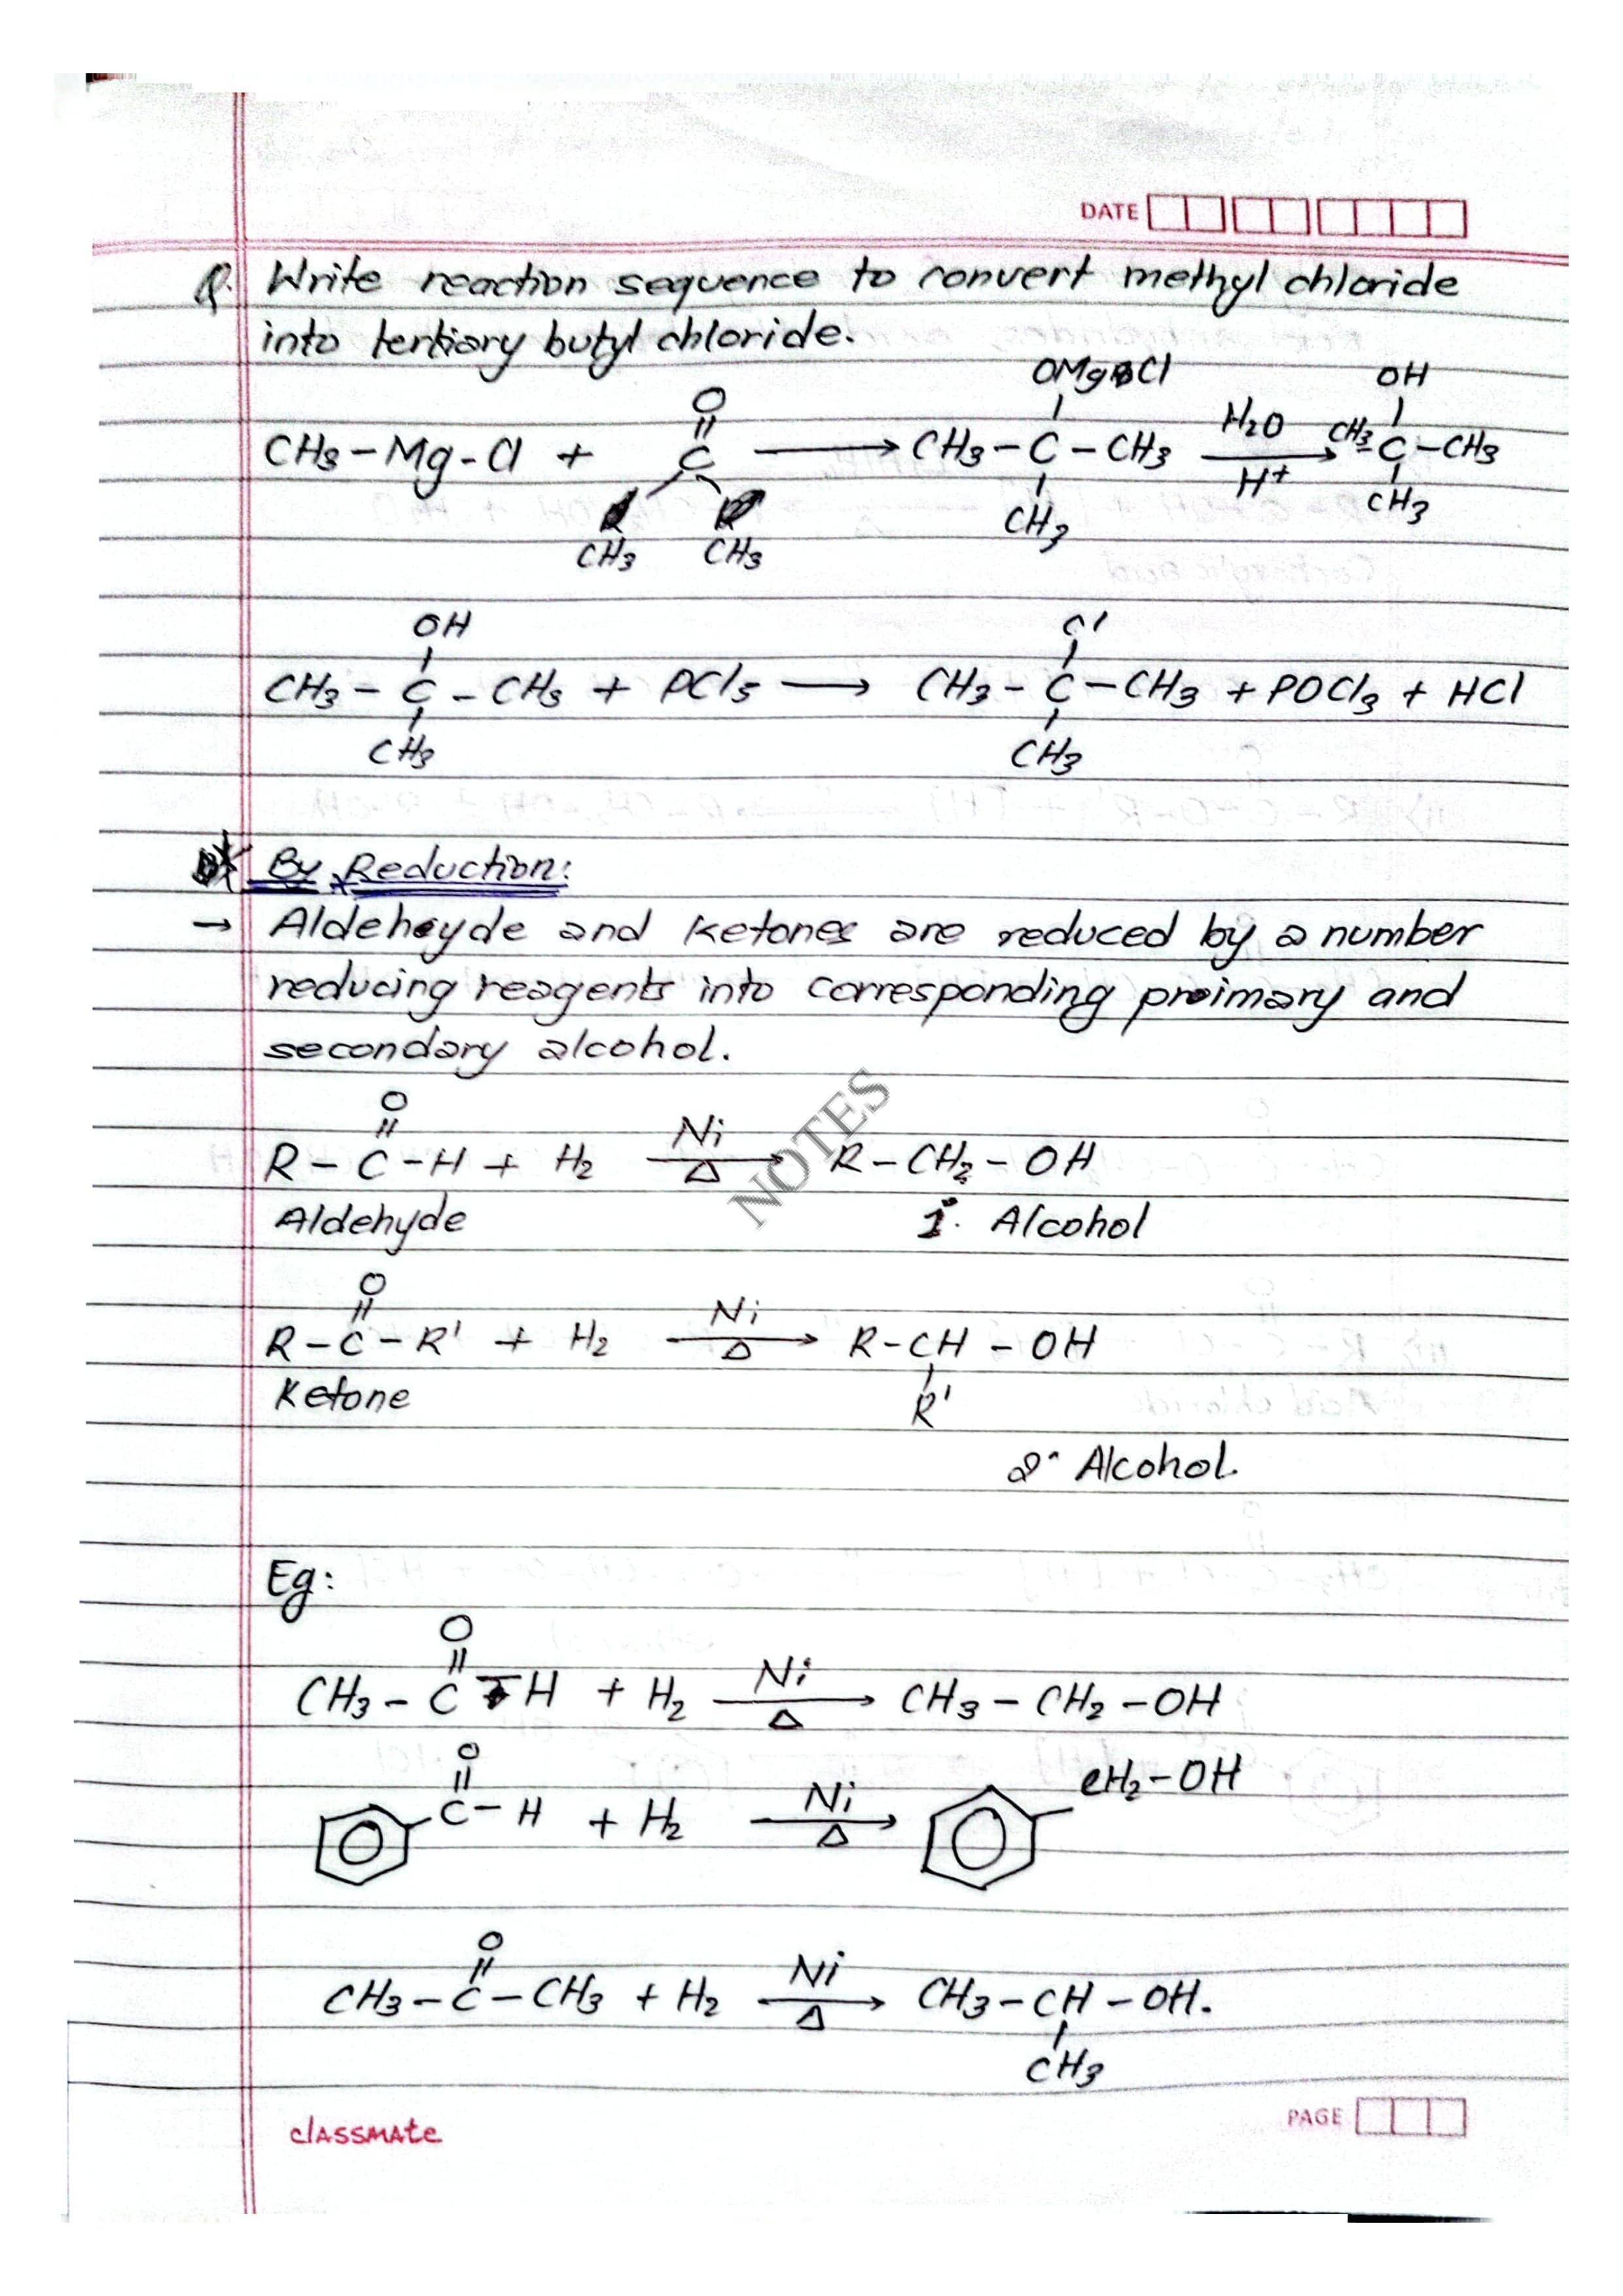 DATE
Q. Write reaction sequence to convert methyl chloride
into tertiary butyl chloride.
O OMgCl OH
|| | |
CH3-Mg-Cl + C ⟶ CH3-C-CH3 H2O/H+ ⟶ CH3-C-CH3
CH3 CH3 CH3 CH3
OH Cl
| |
CH3-C-CH3 + PCl5 ⟶ CH3-C-CH3 + POCl3 + HCl
| |
CH3 CH3
* By Reduction:
→ Aldehyde and Ketones are reduced by a number
reducing reagents into corresponding primary and
secondary alcohol.
O
||
R-C-H + H2 Ni/Δ ⟶ R-CH2-OH
Aldehyde 1° Alcohol
NOTES
O
||
R-C-R' + H2 Ni/Δ ⟶ R-CH-OH
Ketone R'
2° Alcohol.
Eg:
O
||
CH3-C-H + H2 Ni/Δ ⟶ CH3-CH2-OH
O
||
C-H + H2 Ni/Δ ⟶ CH2-OH
O
||
CH3-C-CH3 + H2 Ni/Δ ⟶ CH3-CH-OH.
|
CH3
classmate
PAGE